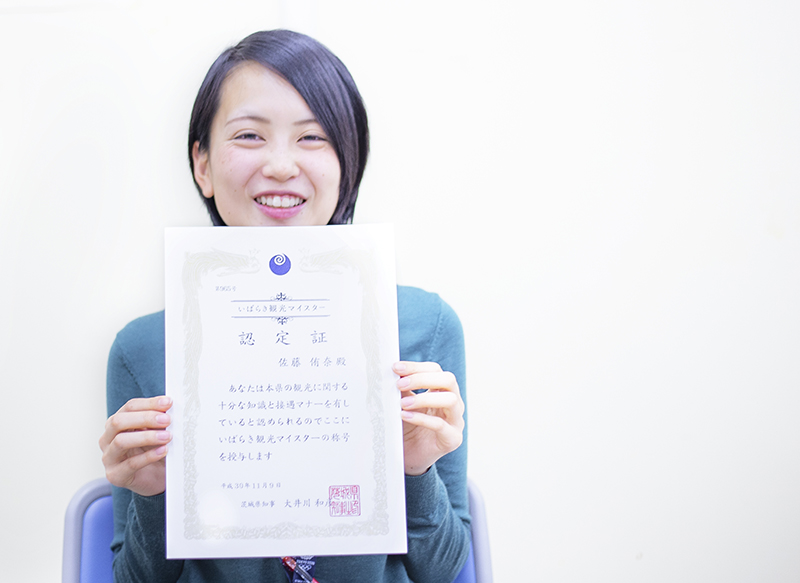 いばらき観光マイスター
認定証
佐藤 侑奈殿
あなたは本県の観光に関する
十分な知識と接遇マナーを有し
ていると認められるのでここに
いばらき観光マイスターの称号
を授与します
平成30年11月9日
茨城県知事 大井川 和